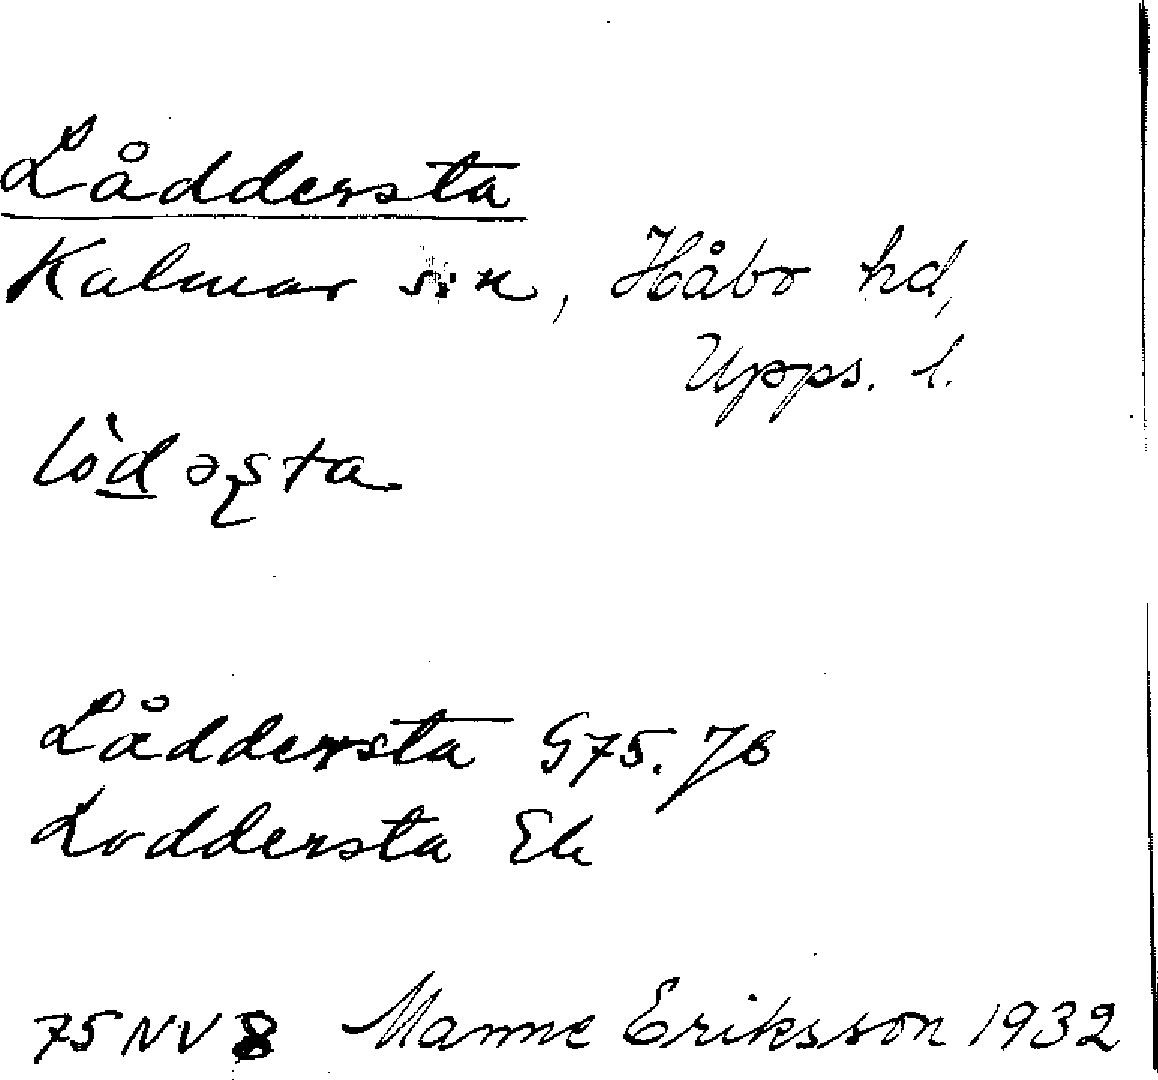 Låddersta
Kalmar s:n, Håbo hd,
Upps. l.
lò̱dəʂta
Låddersta G75. J6
Loddersta Ek
75 NV 8 Manne Eriksson 1932